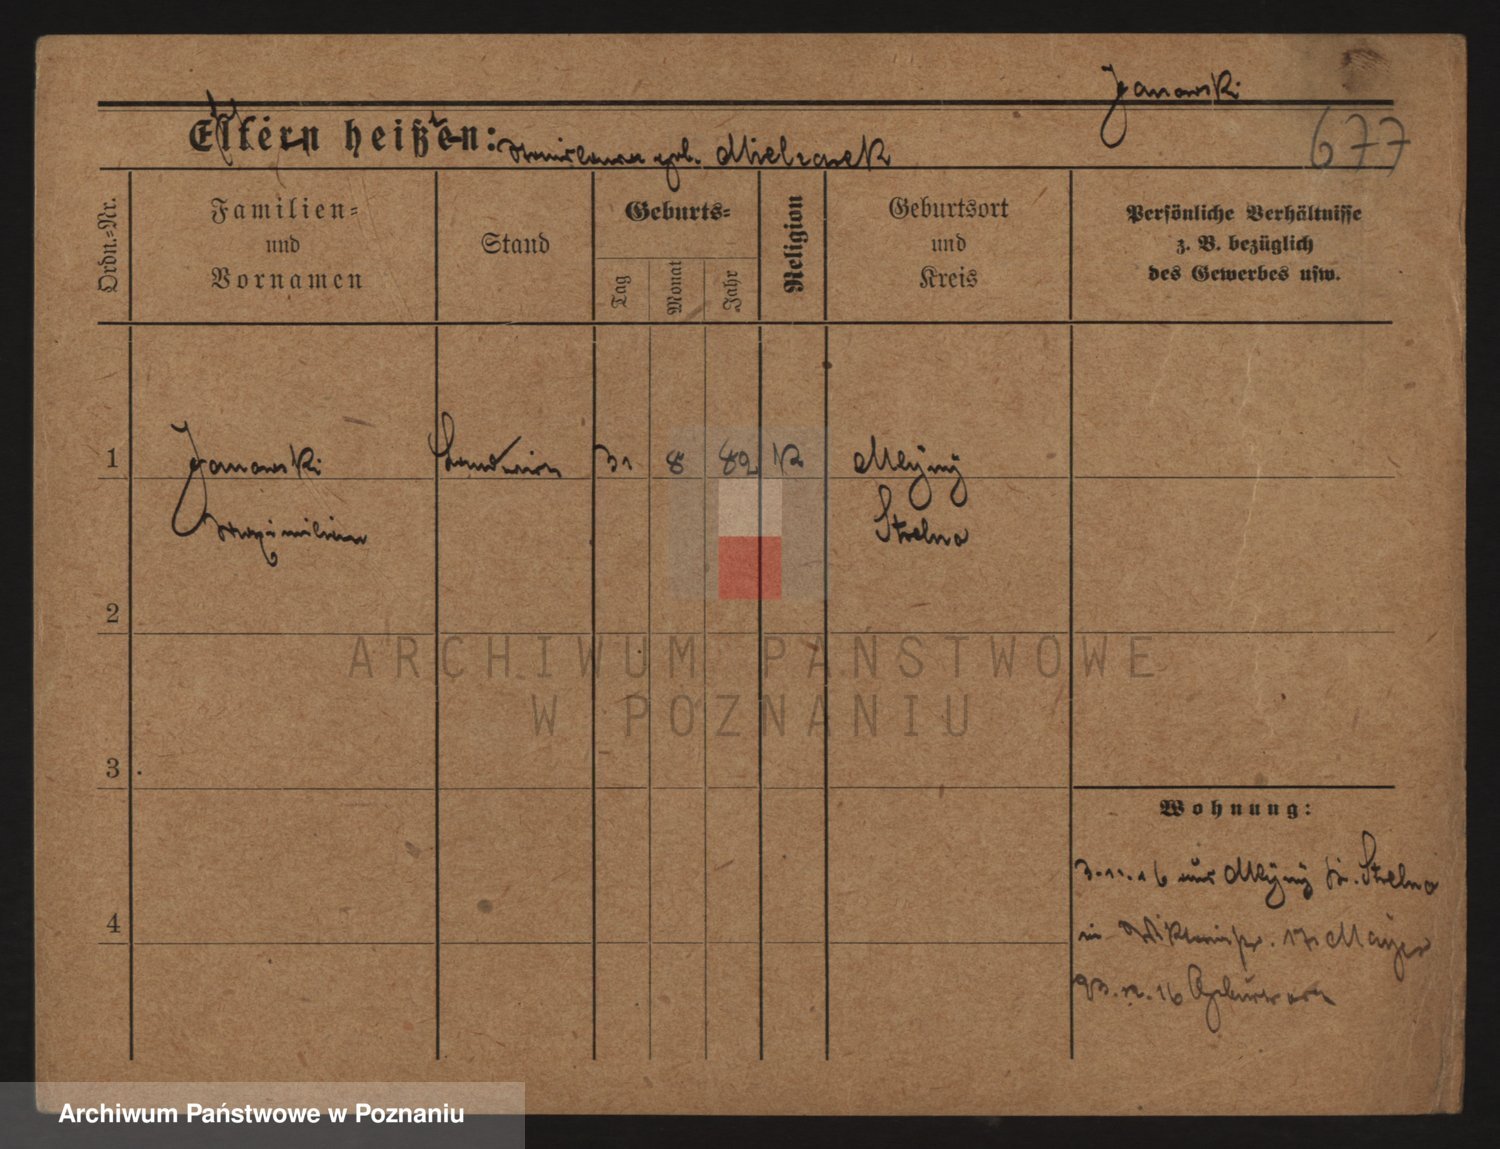 Janowski
677
Eltern heißen: Stanislawa geb. Mielcarek
Ordn.-Nr.
Familien-
und
Vornamen
Stand
Geburts-
Tag
Monat
Jahr
Religion
Geburtsort
und
Kreis
Persönliche Verhältnisse
z. B. bezüglich
des Gewerbes usw.
1
Janowski
Landwirt
31
8
82
K
Mlyny
Maximilian
Strelno
2
3
4
Wohnung:
3.11.16 aus Mlyny Kr. Strelno
in 17 Mayer
23.12.16 Geburtsort
ARCHIWUM PAŃSTWOWE
W POZNANIU
Archiwum Państwowe w Poznaniu